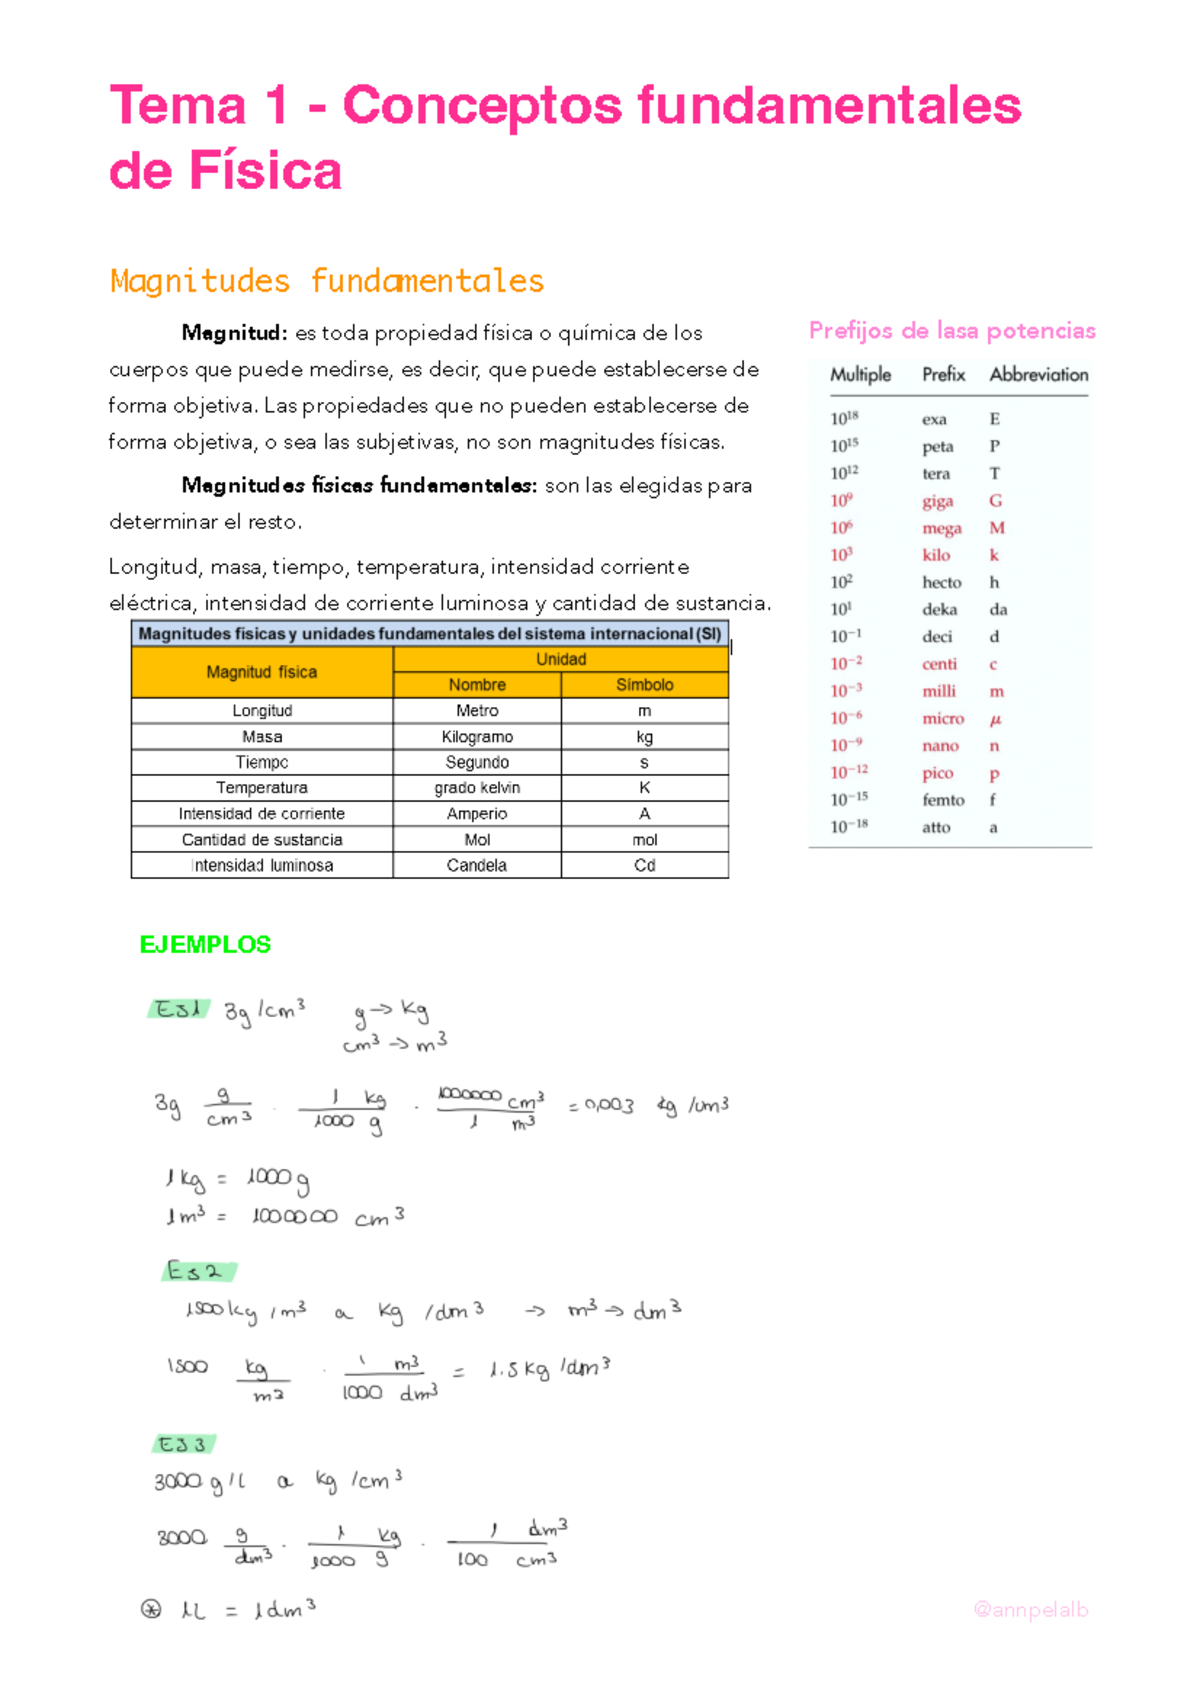 Tema 1 - Conceptos fundamentales
de Física
Magnitudes fundamentales
Magnitud: es toda propiedad física o química de los
cuerpos que puede medirse, es decir, que puede establecerse de
forma objetiva. Las propiedades que no pueden establecerse de
forma objetiva, o sea las subjetivas, no son magnitudes físicas.
Magnitudes físicas fundamentales: son las elegidas para
determinar el resto.
Longitud, masa, tiempo, temperatura, intensidad corriente
eléctrica, intensidad de corriente luminosa y cantidad de sustancia.
Magnitudes físicas y unidades fundamentales del sistema internacional (SI)
Magnitud física Unidad
Nombre Símbolo
Longitud Metro m
Masa Kilogramo kg
Tiempo Segundo s
Temperatura grado kelvin K
Intensidad de corriente Amperio A
Cantidad de sustancia Mol mol
Intensidad luminosa Candela Cd
Prefijos de lasa potencias
Multiple Prefix Abbreviation
10¹⁸ exa E
10¹⁵ peta P
10¹² tera T
10⁹ giga G
10⁶ mega M
10³ kilo k
10² hecto h
10¹ deka da
10⁻¹ deci d
10⁻² centi c
10⁻³ milli m
10⁻⁶ micro μ
10⁻⁹ nano n
10⁻¹² pico p
10⁻¹⁵ femto f
10⁻¹⁸ atto a
EJEMPLOS
EJ1 3g/cm³ g → kg
cm³ → m³
3g g/cm³ · 1 kg/1000 g · 1000000 cm³/1 m³ = 0,003 kg/cm³
1kg = 1000g
1m³ = 1000000 cm³
EJ2
1500kg/m³ a kg/dm³ → m³ → dm³
1500 kg/m³ · 1 m³/1000 dm³ = 1.5kg/dm³
EJ3
3000 g/L a kg/cm³
3000 g/dm³ · 1 kg/1000 g · 1 dm³/100 cm³
⊛ 1L = 1dm³
@annpelalb